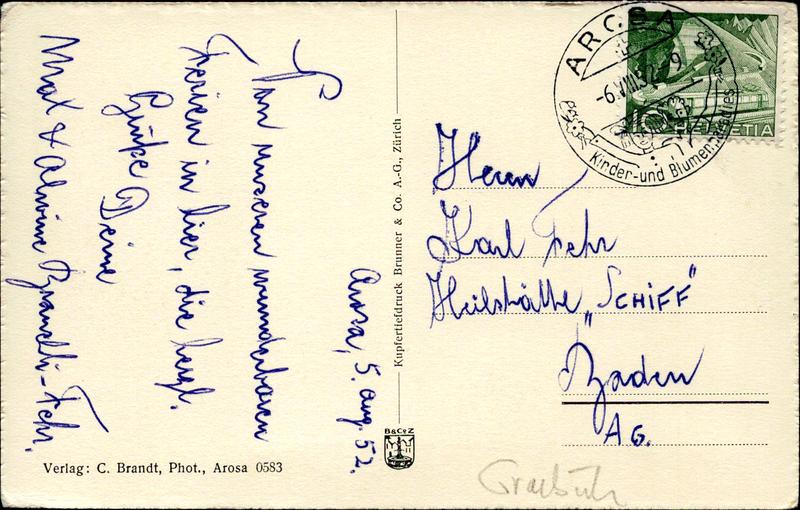 Arosa, 5. Aug. 52.
Von unseren wunderbaren
Ferien in hier, die herzl.
Grüße Deine
Max & Alwine Brandli-Fehr.
Verlag: C. Brandt, Phot., Arosa 0583
Kupfertiefdruck Brunner & Co. A.-G., Zürich
B&CoZ
AROSA
-6.VIII.52.-9
Kinder-und Blumenparadies
10
HELVETIA
Herrn
Karl Fehr
Heilstätte „SCHIFF"
Baden
AG.